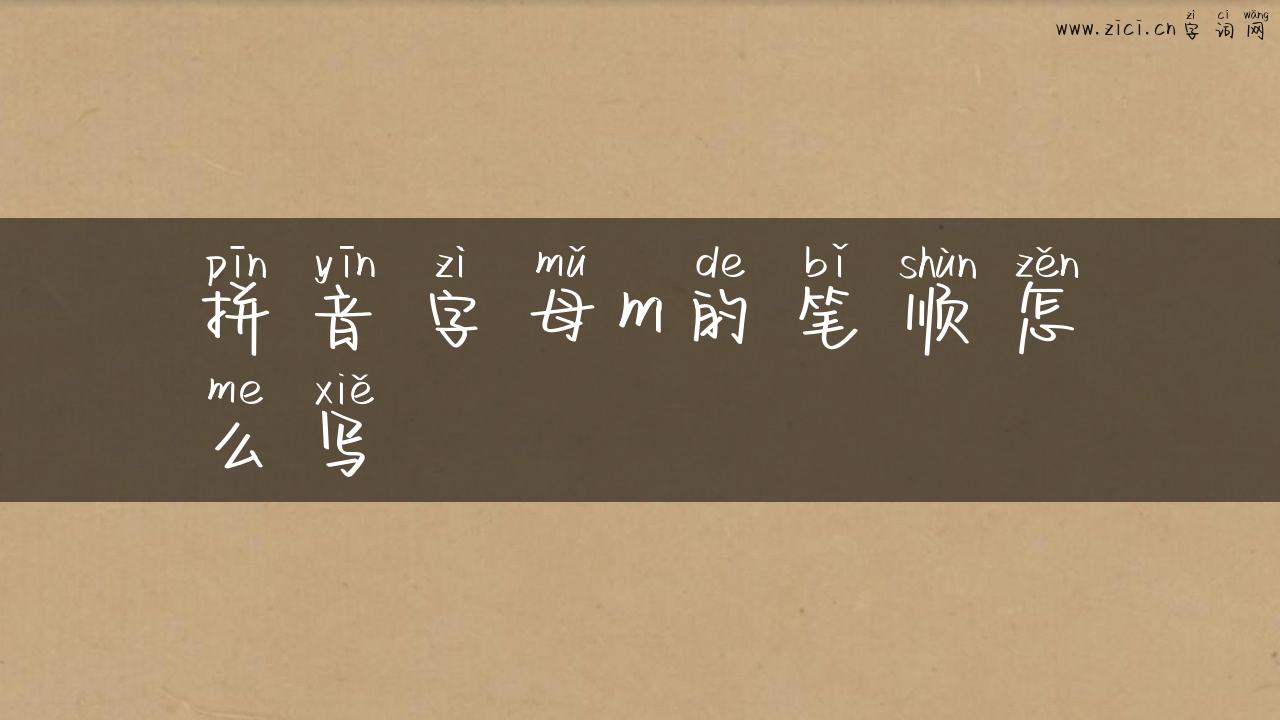 zì cí wǎng
www.zici.cn 字词网
pīn yīn zì mǔ de bǐ shùn zěn
拼音字母m的笔顺怎
me xiě
么写